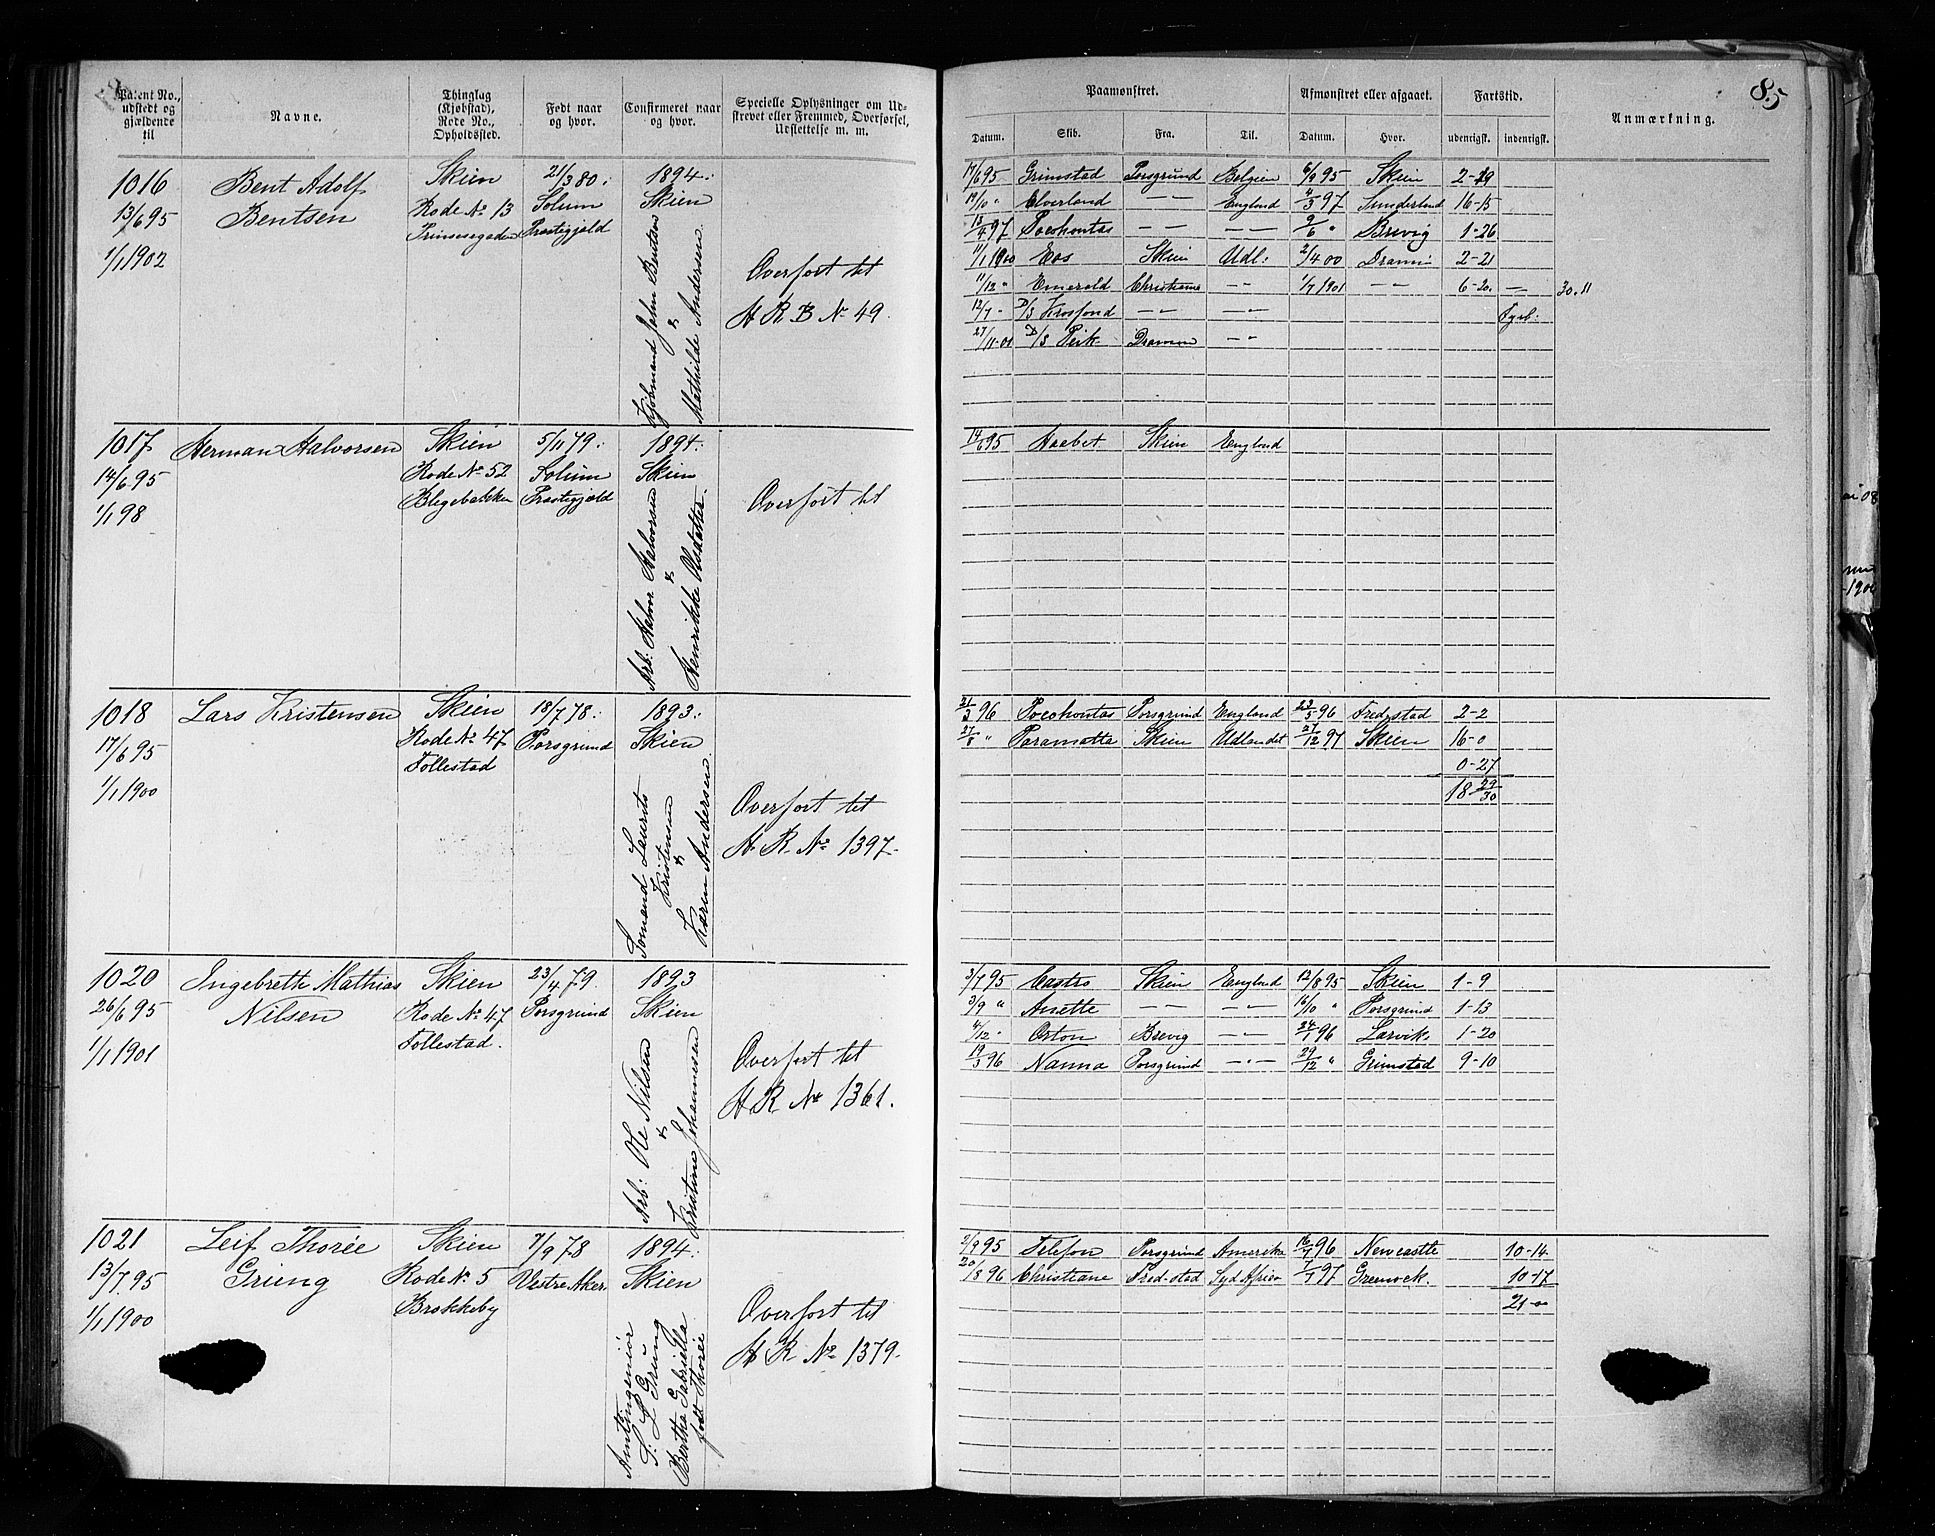 85
Patent No., udstedt og gjældende til
Navne.
Thinglag (Kjøbstad), Rode No., Opholdssted.
Født naar og hvor.
Confirmeret naar og hvor.
Specielle Oplysninger om Udstrevet eller Fremmed, Overførsel, Udslettelse m. m.
Paamønstret.
Afmønstret eller afgaaet.
Fartstid.
Anmærkning.
Datum.
Skib.
Fra.
Til.
Datum.
Hvor.
udenrigsk.
indenrigsk.
1016
13/6 95
1/1 1902
Bent Adolf
Bentsen
Skien
Rode No 13
Prinsessegaden
21/3 80.
Solum
Præstegjeld
1894.
Skien
Kjøbmand John Bentsen
&
Mathilde Andersen.
Overført til
H R B No 49.
17/6 95 Grimstad Porsgrund Belgien 6/9 95 Skien 2-19
19/10 " Elverland — — England 4/3 97 Sunderland 16-15
13/4 97 Pocohontas — — — — 9/6 " Brevig 1-26
11/1 1900 Eos Skien Udl: 2/4 00 Dramn 2-21
11/12 " Emerald Christiania — " — 1/7 1901 — " — 6-20. — 30.11
12/7 - D/S Krosfond — " — — " — Fyrb:
27/11-01 D/S Peik Dramn — " —
1017
14/6 95
1/1 98
Herman Halvorsen
Skien
Rode No 52
Blegebakken
5/11 79.
Solum
Præstegjæld
1894.
Skien
Arb: Halvor Halvorsen
&
Henrikke Olsdatter.
Overført til
14/6 95 Haabet Skien England
1018
17/6 95
1/1 1900
Lars Kristensen
Skien
Rode No 47
Follestad
18/7 78.
Porsgrund
1893.
Skien
Sømand Laurits
Kristensen
&
Karen Andersen
Overført til
H. R. No 1397.
21/3 96 Pocohontas Porsgrund England 23/5 96 Fredrstad 2-2
27/8 " Paramatta Skien Udlandet 27/12 97 Skien 16-0
0-27
18 29/30
1020
26/6 95
1/1 1901
Ingebreth Mathias
Nilsen
Skien
Rode No 47
Follestad.
23/4 79.
Porsgrund
1893
Skien
Arb: Ole Nilsen
&
Kristine Johannesen
Overført til
H R No 1361.
3/7 95 Castro Skien England 12/8 95 Skien 1-9
3/9 " Anette — — — " — 16/10 " Porsgrund 1-13
4/12 " Orion Brevig — " — 24/1 96 Larvik. 1-20
19/3 96 Nanna Porsgrund — " — 29/12 " Grimstad 9-10
1021
13/7 95
1/1 1900
Leif Thorée
Grüng
Skien
Rode No 5
Brekkeby
7/9 78
Vestre Aker.
1894.
Skien
Amtsingeniør
S: L Grüng
Bertha Gabriella
født Thorée
Overført til
H R No 1379.
2/9 95 Telefon Porsgrund Amerika 16/7 96 Newcastle 10-14.
20/8 96 Christiane Fred-stad Syd Africa 7/7 97 Greenock. 10-17
21-00